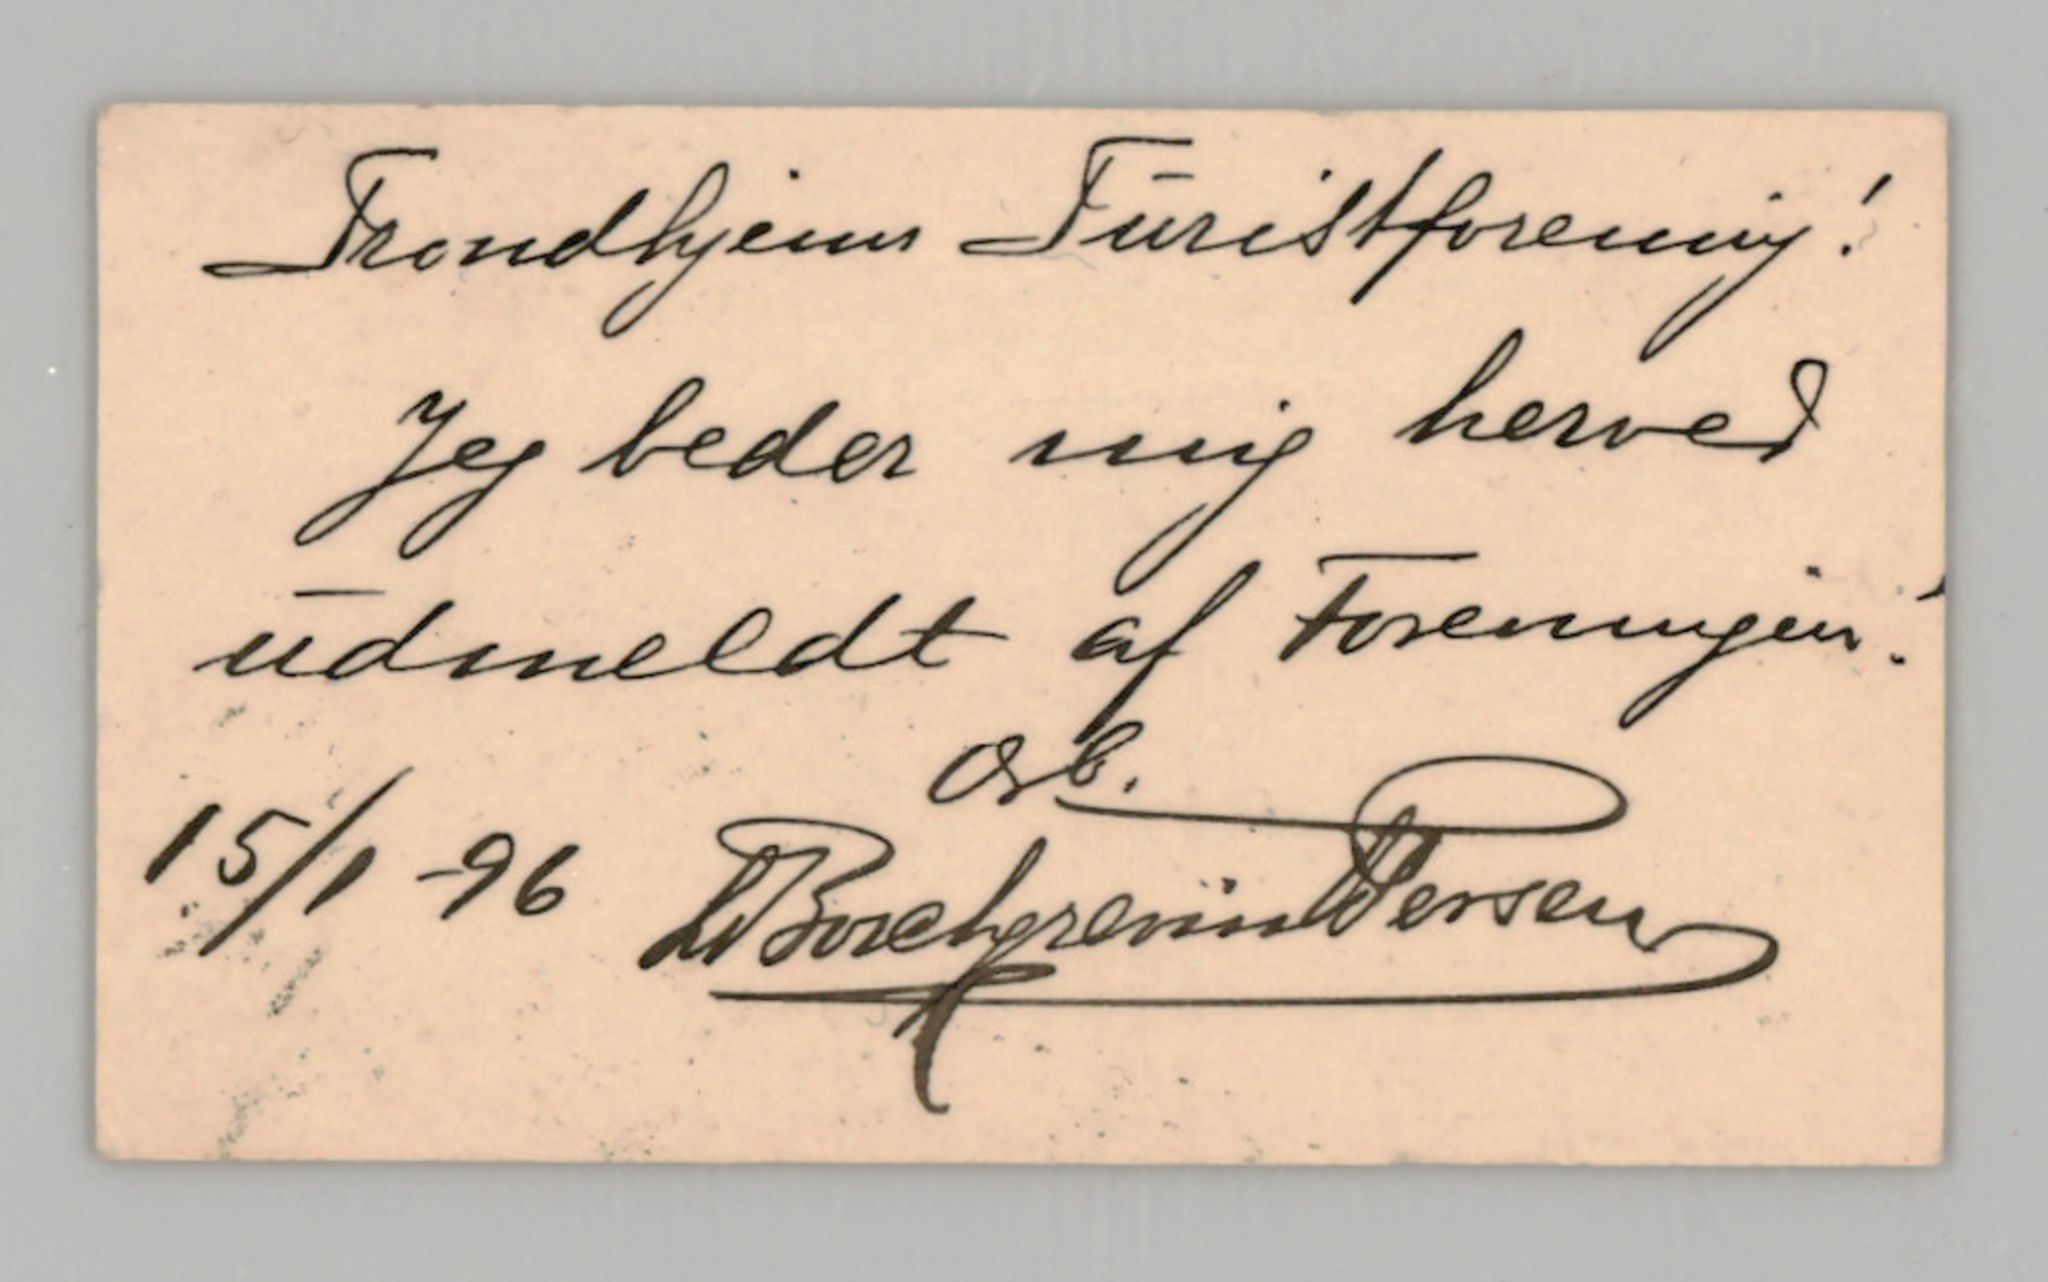 Trondhjems Turistforening!
Jeg beder mig herved
udmeldt af Foreningen!
Ærb.
15/1 -96 Borchgrevink Persen